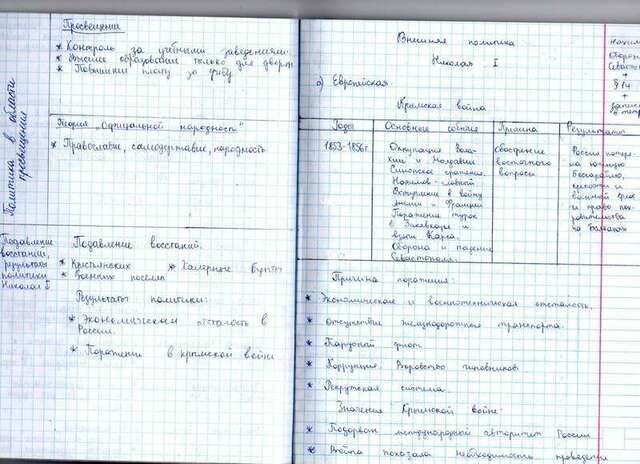 Политика в области
просвещения
Просвещения
* Контроль за учебными заведениями.
* Высшее образование только для дворян
* Повышили плату за учёбу
Теория "Официальной народности"
* Православие, самодержавие, народность
Подавление
восстаний,
результаты
политики
Николая I
Подавление восстаний:
* Крестьянских
* Холерные бунты
* Военных поселян
Результаты политики:
* Экономическая отсталость в
России.
* Поражение в крымской войне
Внешняя политика
Николая I
Европейская
Крымская война
Годы
Основные события
Причина
Результаты
1853-1856г
Оккупация Вала-
хии и Молдавии
Синопское сражение.
Нахимов-главный
Вступление в войну
Англии и Франции
Поражение турок
в Закавказье и
взятие Карса.
Оборона и падение
Севастополя.
обострение
восточного
вопроса
Россия потеря-
ла южную
Бессарабию,
крепости и
военный флот
и право пок-
ровительства
на Балканах
Причина поражения:
* Экономическая и военнотехническая отсталость.
* отсутствие железнодорожного транспорта.
* Парусный флот
* Коррупция. Воровство чиновников
* Рекрутская система.
Значение Крымской войны:
* Подорван международный авторитет России
* Война показала необходимость проведения
Нахимов
Оборона
Севастополя
+
§14
+